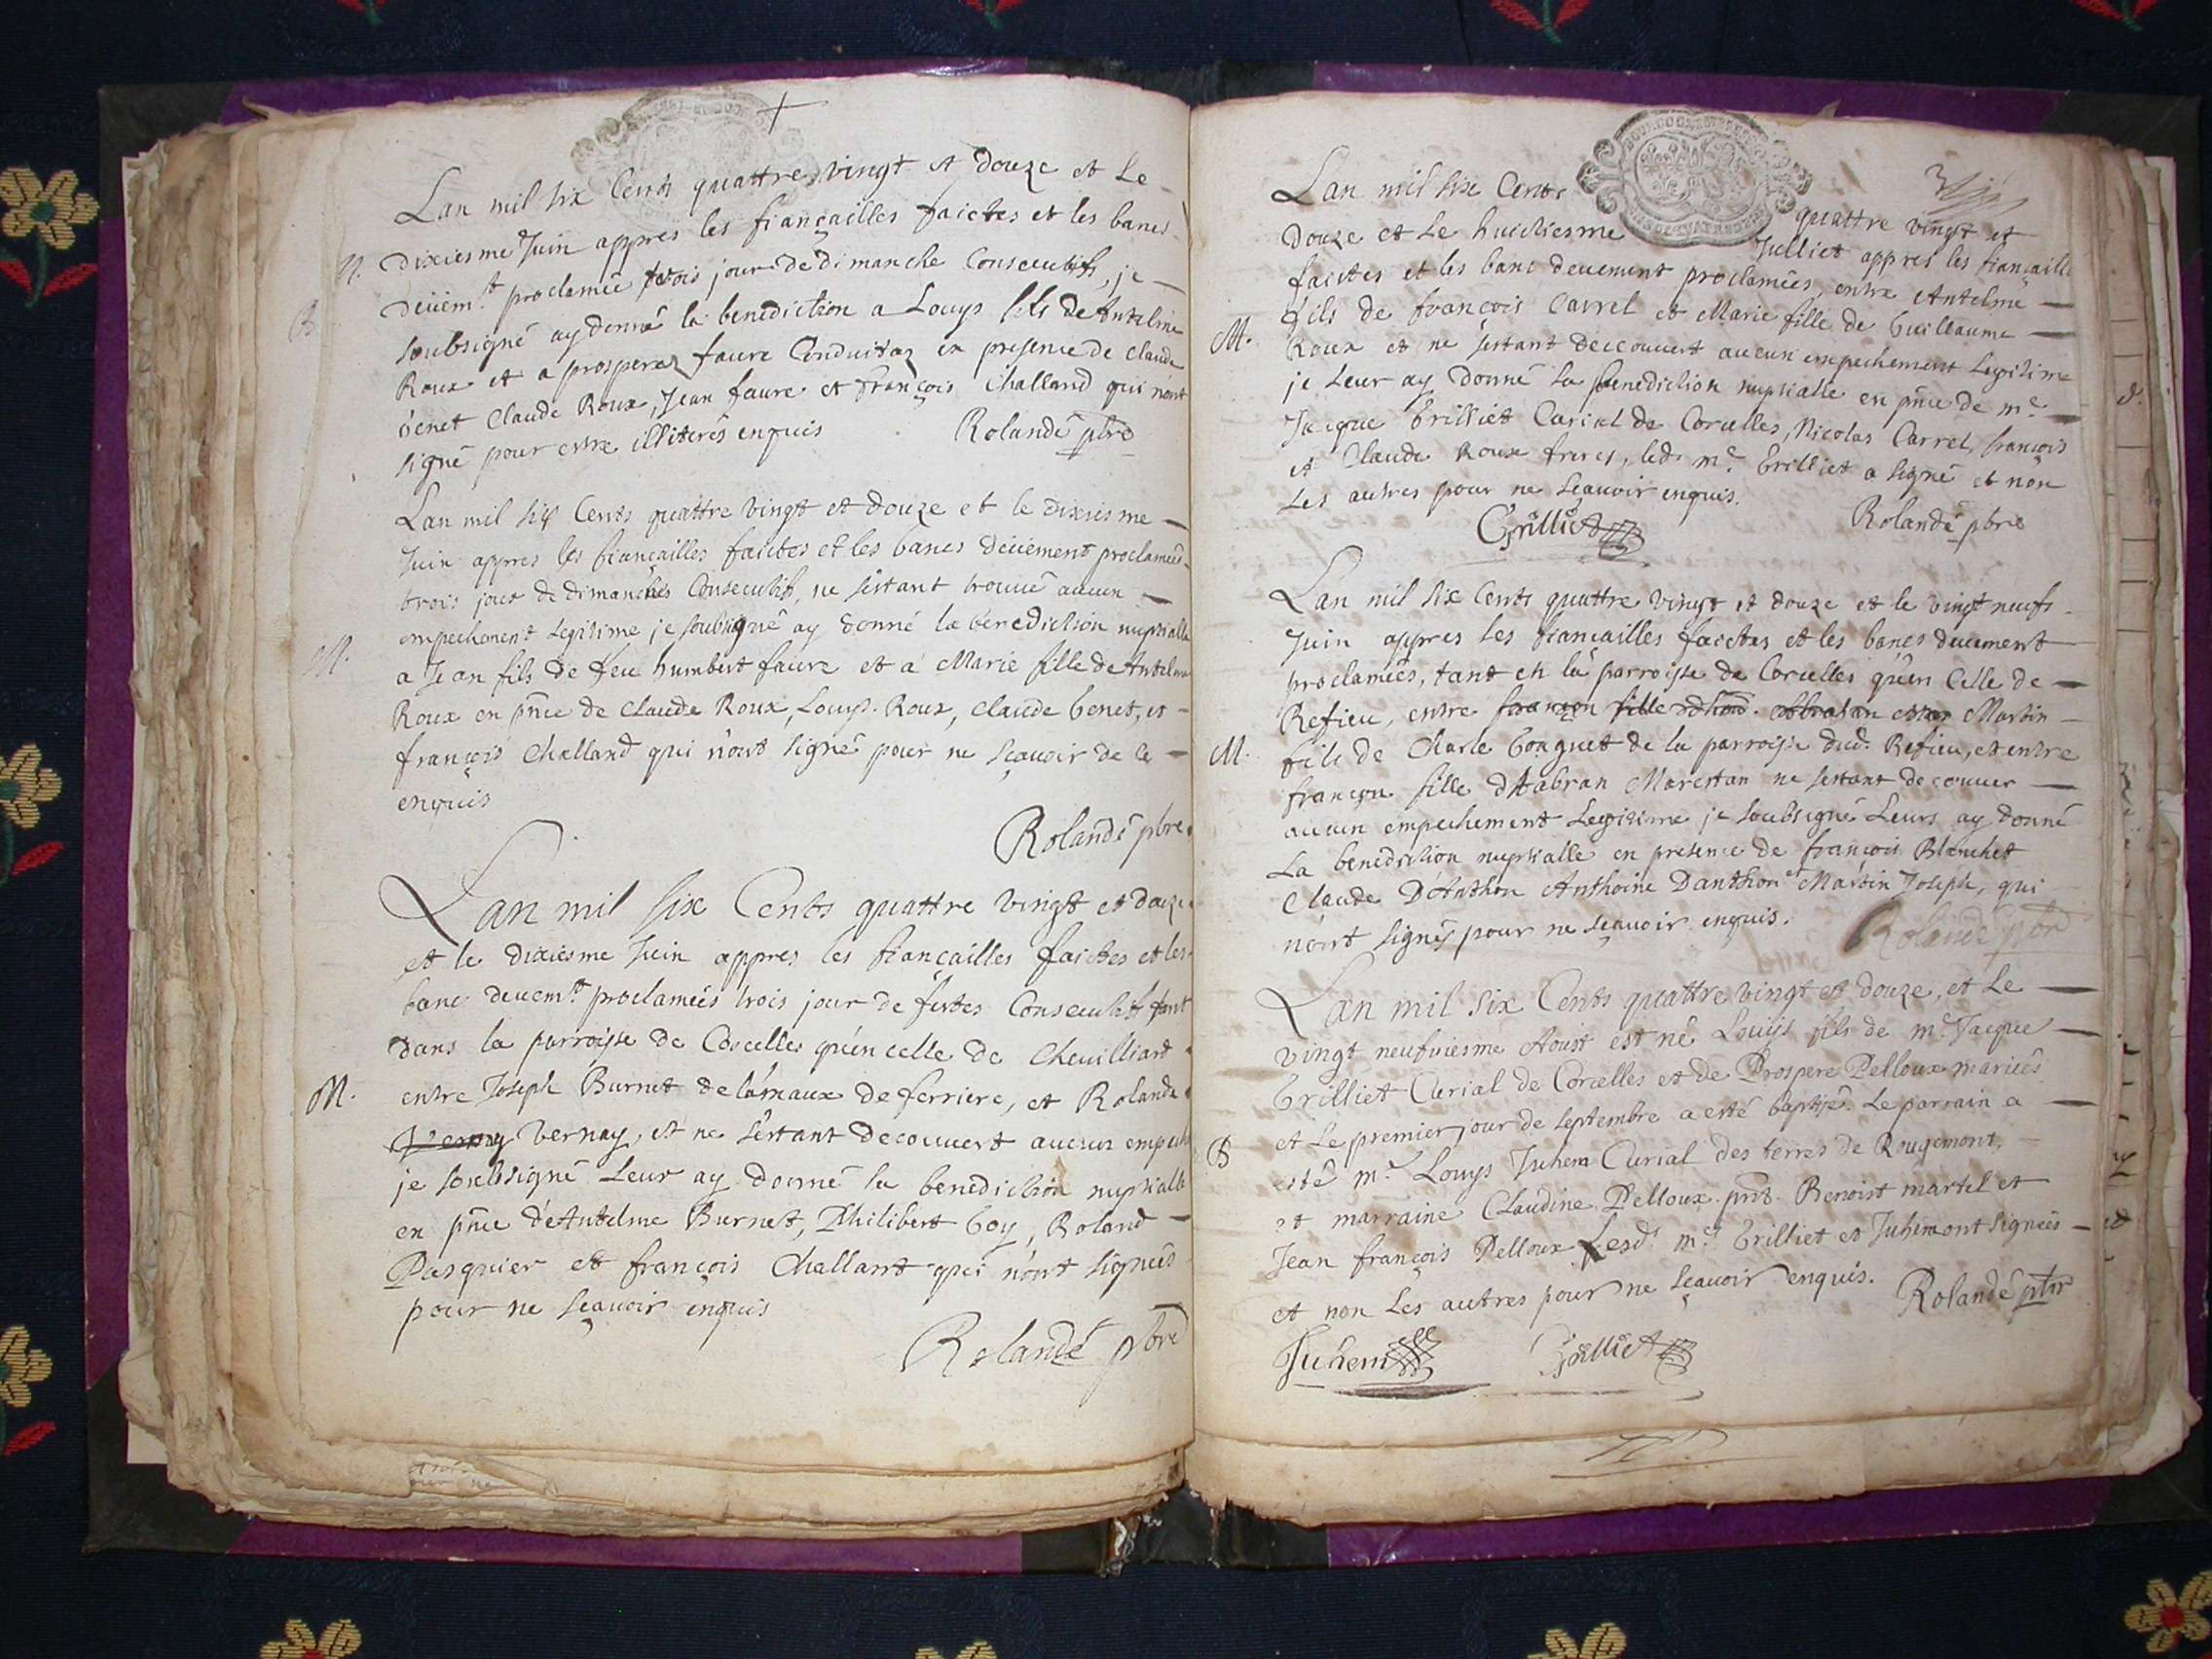 Lan mil six Cents quattre vingt et douze et le
dixiesme Juin appres les fiançailles faictes et les bancs
M. deüem.t proclamée trois jour de dimanche Consecutifs, je
B soubsigné ay donné la benediction a Louys fils de Antelme
Roux et a prospere faure Conduitaz en presence de claude
Genet Claude Roux, Jean faure et françois Challand qui n'ont
signé pour estre illiterés enquis Rolandé pbre
Lan mil six Cents quattre vingt et douze et le dixiesme
Juin appres les fiançailles faictes et les bancs deüement proclamées
trois jour de dimanches Consecutifs, ne sestant trouué aucun
empechement legitime je soubsigné ay donné la benediction nuptialle
M. a Jean fils de feu humbert faure et a Marie fille de Antelme
Roux en pñce de Claude Roux, Louys Roux, Claude Genet, et
françois Challand qui n'ont signé pour ne sçauoir de ce
enquis
Rolandé pbre
Lan mil six Cents quattre vingt et douze
et le dixiesme Juin appres les fiançailles faictes et les
banc deuem.t proclamées trois jour de festes Consecutifs tant
dans la parroisse de Corcelles qu'en celle de Cheuilliard
M. entre Joseph Burnet de lameaux de ferriere, et Rolande
Vernay, et ne sestant decouuert aucun empech
je soubsigné Leur ay donné la benediction nuptialle
en pñce d'Antelme Burnet, Philibert Goy, Roland
Pasquier et françois Challant qui n'ont signées
pour ne sçauoir enquis
Rolandé pbre
Lan mil six Cents quattre vingt et
douze et Le huictiesme Julliet appres les fiançaill
faictes et les banc deuement proclamées, entre Antelme
fils de françois Carrel et Marie fille de Guillaume
M. Roux et ne sestant decouuert aucun empechement Legitime
je Leur ay donné La benediction nuptialle en pñce de m.e
Jacque Grilliet Curial de Corcelles, Nicolas Carrel, françois
et Claude Roux freres, led. m.e Grilliet a signé et non
Les autres pour ne sçauoir enquis.
Grilliet Rolandé pbre
Lan mil six Cents quattre vingt et douze et le vingt neufs
Juin appres les fiançailles faictes et les bancs duement
proclamées, tant en la parroisse de Corcelles qu'en Celle de
Refieu, entre Martin
M. fils de Charle Gonguet de la parroisse dud. Refieu, et entre
françon fille d'Habran Marestan ne sestant decouuer
aucun empechement Legitime je soubsigné Leurs ay donné
La benediction nuptialle en presence de françois Blanchet
Claude D'Anthon Anthoine Danthon et Martin Joseph, qui
n'ont signés pour ne sçauoir enquis.
Rolandé pbre
Lan mil six Cents quattre vingt et douze, et Le
vingt neufuiesme Aoust est né Louys fils de m.e Jacque
Grilliet Curial de Corcelles et de Prospere Pelloux mariées
et Le premier jour de septembre a esté baptisé. Le parrain a
B esté m.e Louys Juhem Curial des terres de Rougemont,
et marraine Claudine Pelloux. pnt. Benoist martel et
Jean françois Pelloux Lesd. m.e Grilliet et Juhem ont signées
et non Les autres pour ne sçauoir enquis. Rolandé pbr
Juhem Grilliet